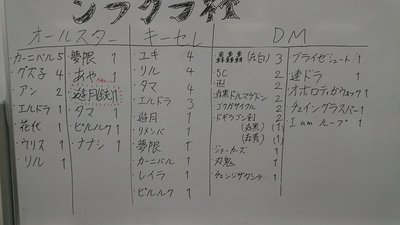 シックフ杯
オールスター
・カーニバル 5
・グズ子 4
・アン 2
・エルドラ 1
・花代 1
・ウリス 1
・リル 1
・夢限 1
・あや 1
・遊月(銃) 1
・タマ 1
・ピルルク 1
・ナナシ 1
キーセレ
・ユキ 4
・リル 4
・タマ 4
・エルドラ 3
・遊月 1
・リメンバ 1
・夢限 1
・カーニバル 1
・レイラ 1
・ピルルク 1
DM
・轟轟轟(赤白) 3
・5C 2
・卍 2
・赤黒ドルマゲドン 2
・ゴクガサイクル 2
・ドギラゴン剣 2
(赤黒) (1)
(赤青) (1)
・ジョーカーズ 1
・刃鬼 1
・チェンジザダンテ 1
・ブライゼシュート 1
・連ドラ 1
・オボロティガウォック 1
・チェイングラスパー 1
・I am ループ 1